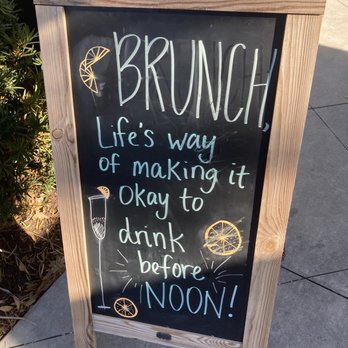 BRUNCH,
Life's way
of making it
Okay to
drink
before
NOON!